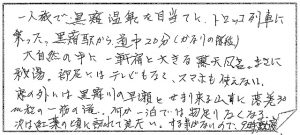 一人旅で黒薙温泉を目当てに、トロッコ列車に
乗った。黒薙駅から道中20分(かなりの階段)
大自然の中に一軒宿と大きな露天風呂。まさに
秘湯。部屋にはテレビもなく、スマホも使えない。
窓の外には黒薙川の早瀬とせまり来る山肌に落差30
m位の一筋の滝。一泊では物足りなくなる。
次は紅葉の頃に訪れて見たい。